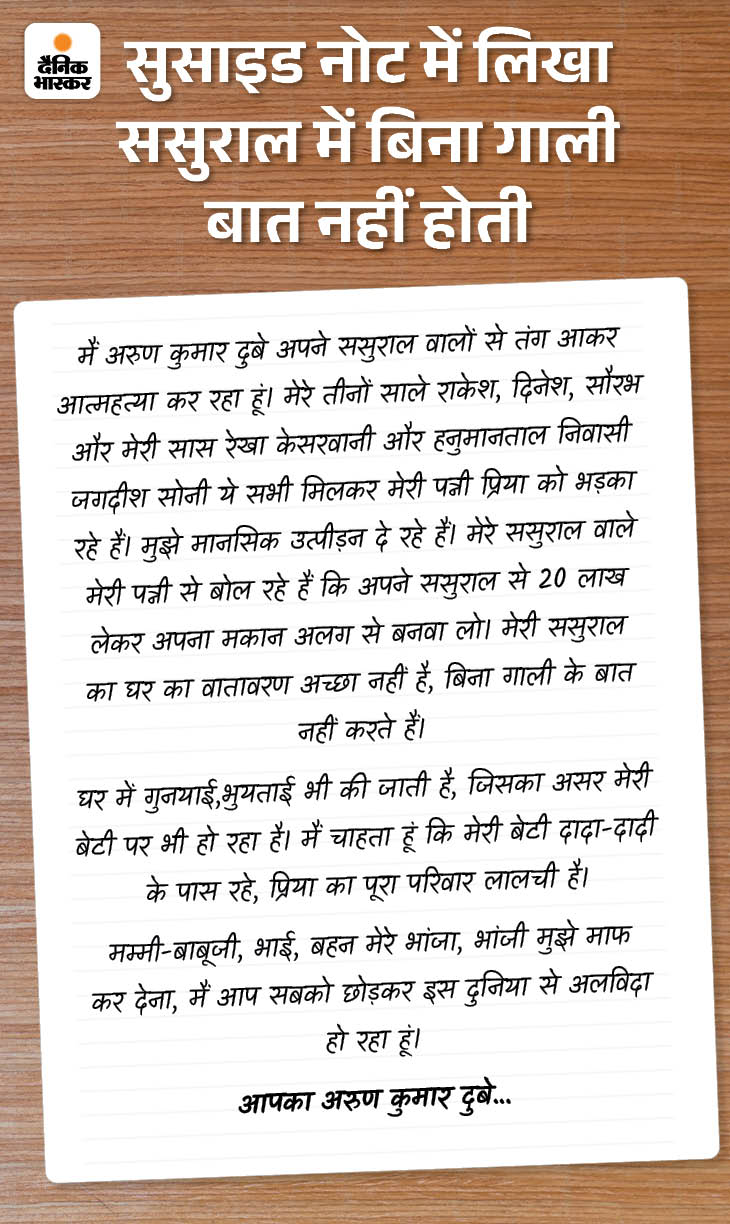 दैनिक
भास्कर
सुसाइड नोट में लिखा
ससुराल में बिना गाली
बात नहीं होती
मैं अरुण कुमार दुबे अपने ससुराल वालों से तंग आकर
आत्महत्या कर रहा हूं। मेरे तीनों साले राकेश, दिनेश, सौरभ
और मेरी सास रेखा केसरवानी और हनुमानताल निवासी
जगदीश सोनी ये सभी मिलकर मेरी पत्नी प्रिया को भड़का
रहे हैं। मुझे मानसिक उत्पीड़न दे रहे हैं। मेरे ससुराल वाले
मेरी पत्नी से बोल रहे हैं कि अपने ससुराल से 20 लाख
लेकर अपना मकान अलग से बनवा लो। मेरी ससुराल
का घर का वातावरण अच्छा नहीं है, बिना गाली के बात
नहीं करते हैं।
घर में गुनयाई,भुयताई भी की जाती है, जिसका असर मेरी
बेटी पर भी हो रहा है। मैं चाहता हूं कि मेरी बेटी दादा-दादी
के पास रहे, प्रिया का पूरा परिवार लालची है।
मम्मी-बाबूजी, भाई, बहन मेरे भांजा, भांजी मुझे माफ
कर देना, मैं आप सबको छोड़कर इस दुनिया से अलविदा
हो रहा हूं।
आपका अरुण कुमार दुबे...